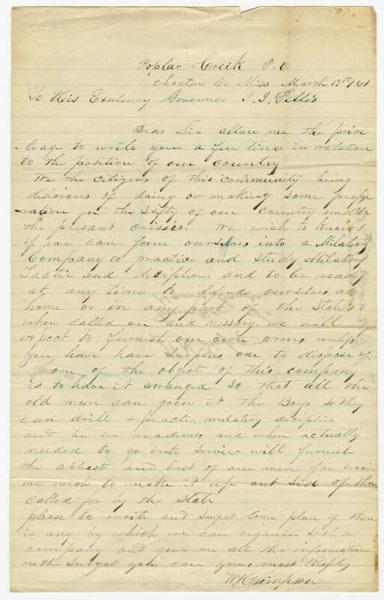 Poplar Creek P. O.
Choctaw Co Miss March 12th/61
To His Exelency Governor J. J. Pettis
Dear Sir allow me the prive
lage to write you a few lines in relation
to the position of our country
We the citizens of this community being
disirous of doing or making some prepe
ration in the safty of our Country under
the present crisis. We wish to know
if we can form ourselves into a Military
Company to practice and study Military
Tactic and decipher and to be ready
at any time to defend ourselves at
home or in any part of the State
when called on and nessary we will
expect to furnish our own arms unless
you have have surplus one to dispose of
of the object of this company
is to have it arranged so that all the
old men can goin it the Boys so they
can drill & practic military deciplin
and be in readiness and when actually
needed to go into Service will furnish
the ablest and best of our men for Servis
we wish to make it up out sid of those
called for by the State
please to write and sugst some plan if there
is any by which we can organise such a
company and give me all the information
on the subject you can yours most Respfly
Simpson